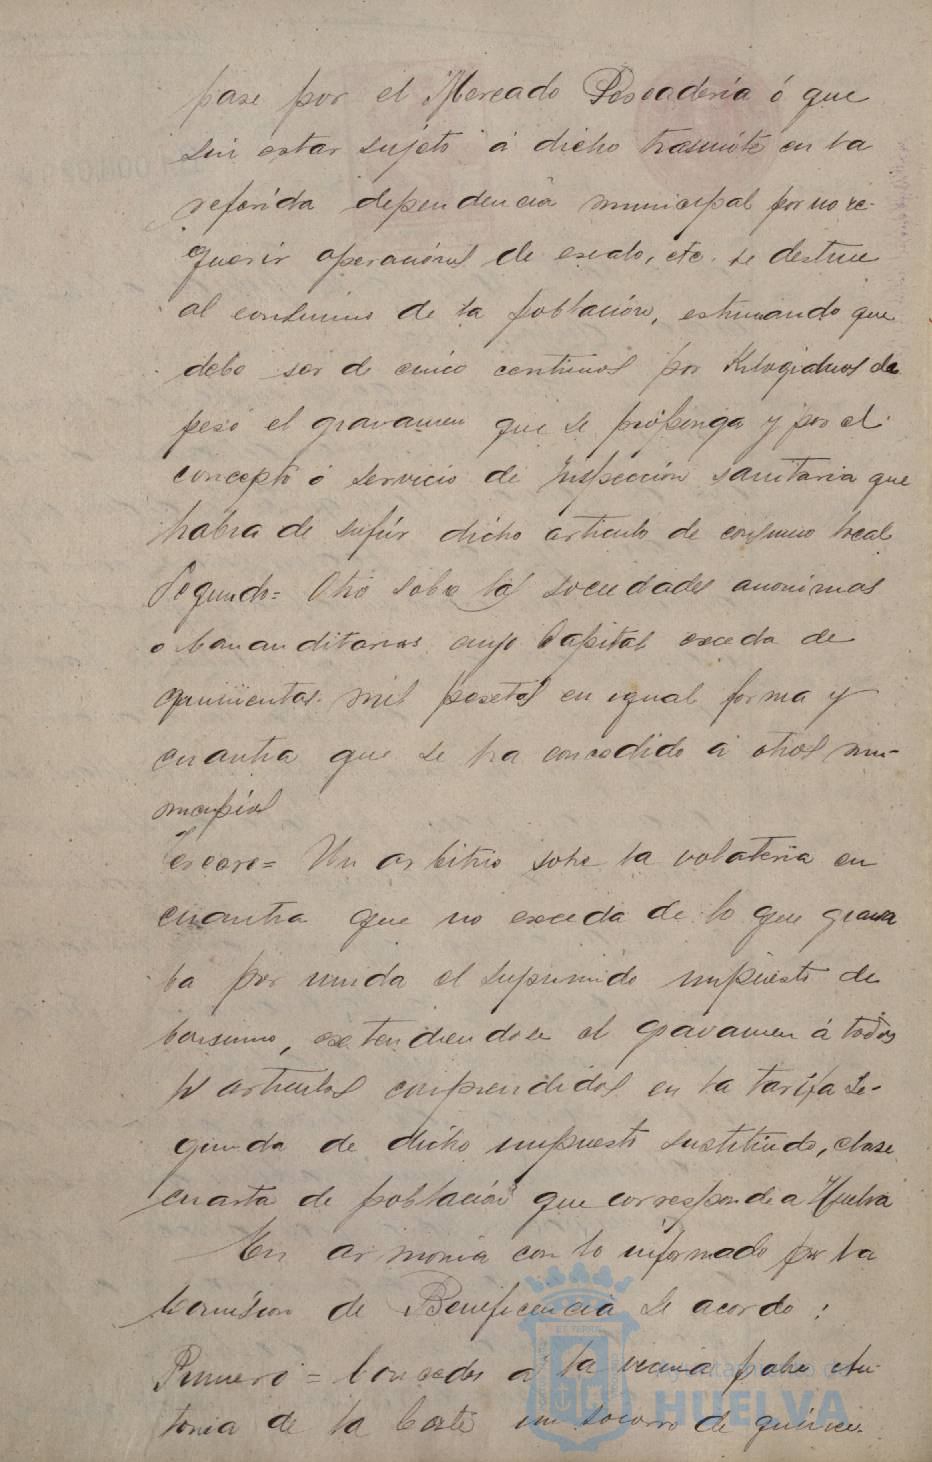 pase por el Mercado Pescadería ó que
sin estar sujeto á dicho trámite en la
referida dependencia municipal por no re-
querir operaciones de escalo, etc. se destine
al consumo de la población, estimando que
debe ser de cinco centimos por Kilogramos de
peso el gravamen que se proponga y por el
concepto ó servicio de inspección sanitaria que
habra de sufrir dicho articulo de consumo local
Segundo= Otro sobre las sociedades anonimas
o comanditarias cuyo Capital exceda de
quinientas mil pesetas en igual forma y
cuantia que se ha concedido á otros mu-
nicipios
Tercero= Un arbitrio sobre la volateria en
cuantia que no exceda de lo que grava
ba por unida el suprimido impuesto de
Consumo, extendiendose el gravamen á todos
los articulos comprendidos en la tarifa se-
gunda de dicho impuesto sustituido, clase
cuarta de población que corresponde a Huelva
En armonia con lo informado por la
Comision de Beneficencia se acordo:
Primero = Conceder á la vecina pobre An-
tonia de la Corte un socorro de quince
Ayuntamiento de
HUELVA